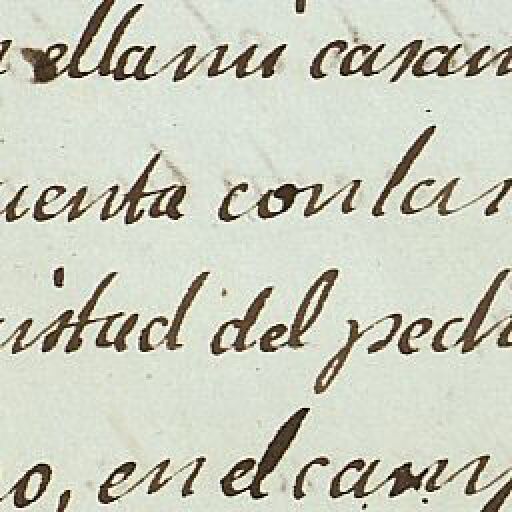 ellani casan
uenta con las
istad del pech
o, en el camp